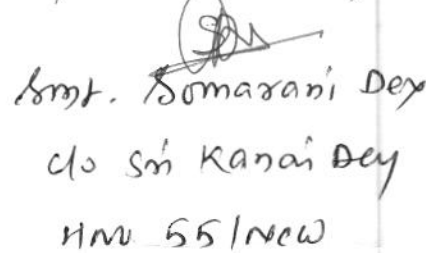 Smt. Somarani Dey
c/o Sri Kanai Dey
HNO 55/New